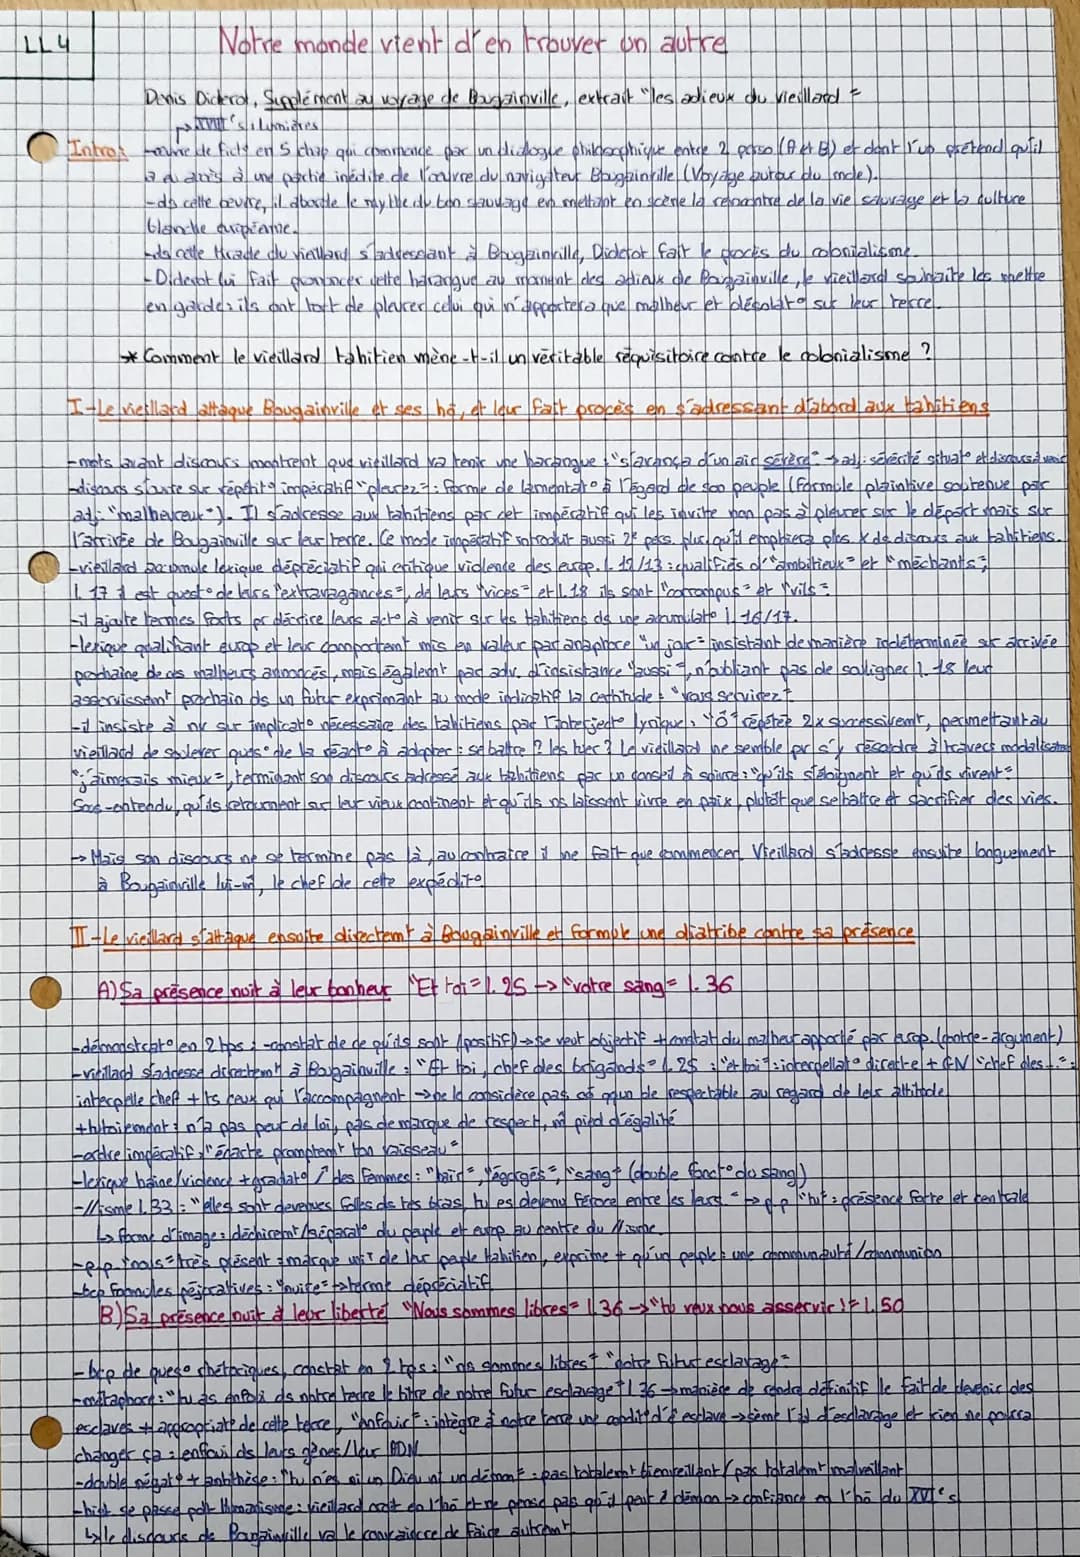 LL4
Notre monde vient d'en trouver un autre
Denis Diderot, Supplément au voyage de Bougainville, extrait "les adieux du vieillard"
→ XVIII's : lumières
Intro : -œuvre de fict° en 5 chap qui commence par un dialogue philosophique entre 2 perso (A et B) et dont l'un prétend qu'il
a eu accès à une partie inédite de l'œuvre du navigateur Bougainville (Voyage autour du monde).
-ds cette oeuvre, il aborde le mythe du bon sauvage en mettant en scène la rencontre de la vie sauvage et la culture
blanche européenne.
-ds cette tirade du vieillard s'addressant à Bougainville, Diderot fait le procès du colonialisme.
-Diderot lui fait prononcer cette harangue au moment des adieux de Bougainville, le vieillard souhaite les mettre
en garde : ils ont tort de pleurer celui qui n'apportera que malheur et désolat° sur leur terre.
* Comment le vieillard tahitien mène-t-il un véritable réquisitoire contre le colonialisme ?
I-Le vieillard attaque Bougainville et ses hô, et leur fait procès en s'adressant d'abord aux tahitiens
-mots avant discours montrent que vieillard va tenir une harangue : "s'avança d'un air sévère" → adj. sévérité situat° et discours à venir
-discours s'ouvre sur répétit° impératif "pleurez" : forme de lamentat° à l'égard de son peuple (formule plaintive soutenue par
adj. "malheureux"). Il s'adresse aux tahitiens par cet impératif qui les invite non pas à pleurer sur le départ mais sur
l'arrivée de Bougainville sur leur terre. Ce mode impératif introduit aussi 2e pers. plur. qu'il emploiera plrs x ds discours aux tahitiens.
-vieillard accumule lexique dépréciatif qui critique violence des europ. l. 12/13 : qualifiés d'"ambitieux" et "méchants";
l. 17 il est quest° de leurs "extravagances", de leurs "vices" et l. 18 ils sont "corrompus" et "vils"
-il ajoute termes forts pr décrire leurs acte à venir sur les tahitiens ds une accumulat° l. 16/17.
-lexique qualifiant europ et leur comportemt mis en valeur par anaphore "un jour" insistant de manière indéterminée sur arrivée
prochaine de ces malheurs annoncés, mais égalemt par adv. d'insistance "aussi", n'oubliant pas de souligner l. 18 leur
asservissemt prochain ds un futur exprimant au mode indicatif la certitude : "vous servirez"
-il insiste à nv sur implicat° nécessaire des tahitiens par l'interject° lyrique : "Ô" répétée 2x successivemt, permettant au
vieillard de soulever quest° de la réact° à adopter : se battre ? les tuer ? Le vieillard ne semble pr s'y résoudre à travers modalisateur
"j'aimerais mieux", terminant son discours adressé aux tahitiens par un conseil à suivre : "qu'ils s'éloignent et qu'ils vivent"
Sous-entendu, qu'ils retournent sur leur vieux continent et qu'ils ns laissent vivre en paix, plutôt que se battre et sacrifier des vies.
→ Mais son discours ne se termine pas là, au contraire il ne fait que commencer. Vieillard s'adresse ensuite longuement
à Bougainville lui-m̂, le chef de cette expédit°.
II-Le vieillard s'attaque ensuite directemt à Bougainville et formule une diatribe contre sa présence
A) Sa présence nuit à leur bonheur "Et toi" l. 25 → "votre sang" l. 36
-démonstrat° en 2 tps : -constat de ce qu'ils sont (positif) → se veut objectif + constat du malheur apporté par europ. (contre-argument)
-vieillard s'adresse directemt à Bougainville : "Et toi, chef des brigands" l. 25 : "et toi" : interpellat° directe + GN "chef des..." :
interpelle chef + ts ceux qui l'accompagnent → ne le considère pas cô qqun de respectable au regard de leur attitude
+ tutoiement : n'a pas peur de lui, pas de marque de respect, m̂ pied d'égalité
-ordre impératif : "écarte promptemt ton vaisseau"
-lexique haine/violence + gradat° ↗ des femmes : "haïr", "égorgés", "sang" (double fonct° du sang)
-//isme l. 33 : "elles sont devenues folles ds tes bras, tu es devenu féroce entre les leurs" → p.p "tu" : présence forte et centrale
↳ forme d'image : déchiremt/séparat° du peuple et europ au centre du //isme
-p.p. "nous" très présent : marque unité de leur peuple tahitien, exprime + qu'un peuple : une communauté/communion
-bcp formules péjoratives : "nuire" → terme dépréciatif
B) Sa présence nuit à leur liberté "Nous sommes libres" l. 36 → "tu veux nous asservir !" l. 50
-bcp de quest° rhétoriques, constat en 2 tps : "ns sommes libres" "notre futur esclavage"
-métaphore : "tu as enfoui ds notre terre le titre de notre futur esclavage" l. 36 → manière de rendre définitif le fait de devenir des
esclaves + appropriat° de cette terre, "enfouir" : intègre à notre terre une condit° d'esclave → sème l'id d'esclavage et rien ne pourra
changer ça : enfoui ds leurs gènes/leur ADN
-double négat° + antithèse : "tu n'es ni un Dieu ni un démon" : pas totalemt bienveillant / pas totalemt malveillant
-hist se passe pdt Humanisme : vieillard croit en l'hô et ne pense pas qu'il peut ê démon → confiance en l'hô du XVI's
↳ le discours de Bougainville va le convaincre de faire autremt